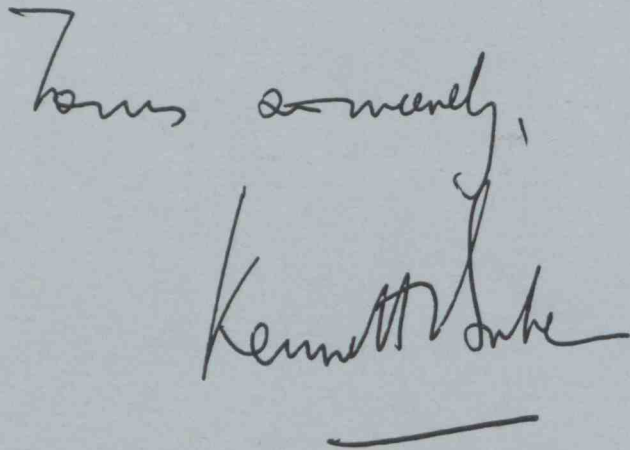 Yours sincerely,
Kenneth